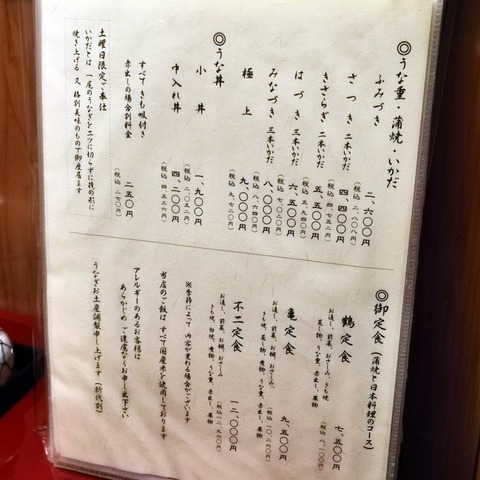 ◎うな重・蒲焼・いかだ
ふみづき
二、六〇〇円
(税込 二、八〇八円)
さつき 二本いかだ
四、二〇〇円
きさらぎ 二本いかだ
五、五〇〇円
(税込 五、九四〇円)
はづき 三本いかだ
六、五〇〇円
(税込 七、〇二〇円)
みなづき 三本いかだ
八、〇〇〇円
(税込 八、六四〇円)
極上
九、〇〇〇円
(税込 九、七二〇円)
◎うな丼
小丼
一、九〇〇円
(税込 二、〇五二円)
中入れ丼
四、二〇〇円
(税込 四、五三六円)
すべて きも吸付き
赤出しの場合別料金
二五〇円
(税込 二七〇円)
土曜日限定ご奉仕
いかだとは 一尾のうなぎを二ツに切らずに後の形に
焼き上げる 又 格別美味のもので御座居ます
◎御定食 (蒲焼と日本料理のコース)
鶴定食
七、五〇〇円
(税込 八、一〇〇円)
お通し、前菜、お椀、おさしみ、きも焼
蒸し物、うな重、赤出し、果物
亀定食
九、五〇〇円
(税込 一〇、二六〇円)
お通し、前菜、お椀、おさしみ、
きも焼、蒸し物、煮物、うな重、赤出し、果物
不二定食
一二、〇〇〇円
(税込 一二、九六〇円)
お通し、前菜、お椀、おさしみ、
きも焼、白焼、煮物、うな重、赤出し、果物
※季節によって 内容が変わる場合がございます
当店のご飯は すべて国産米を使用しております
アレルギーのあるお客様は
あらかじめ ご遠慮なくお申し出下さい
うなぎお土産調製申し上げます (折代別)